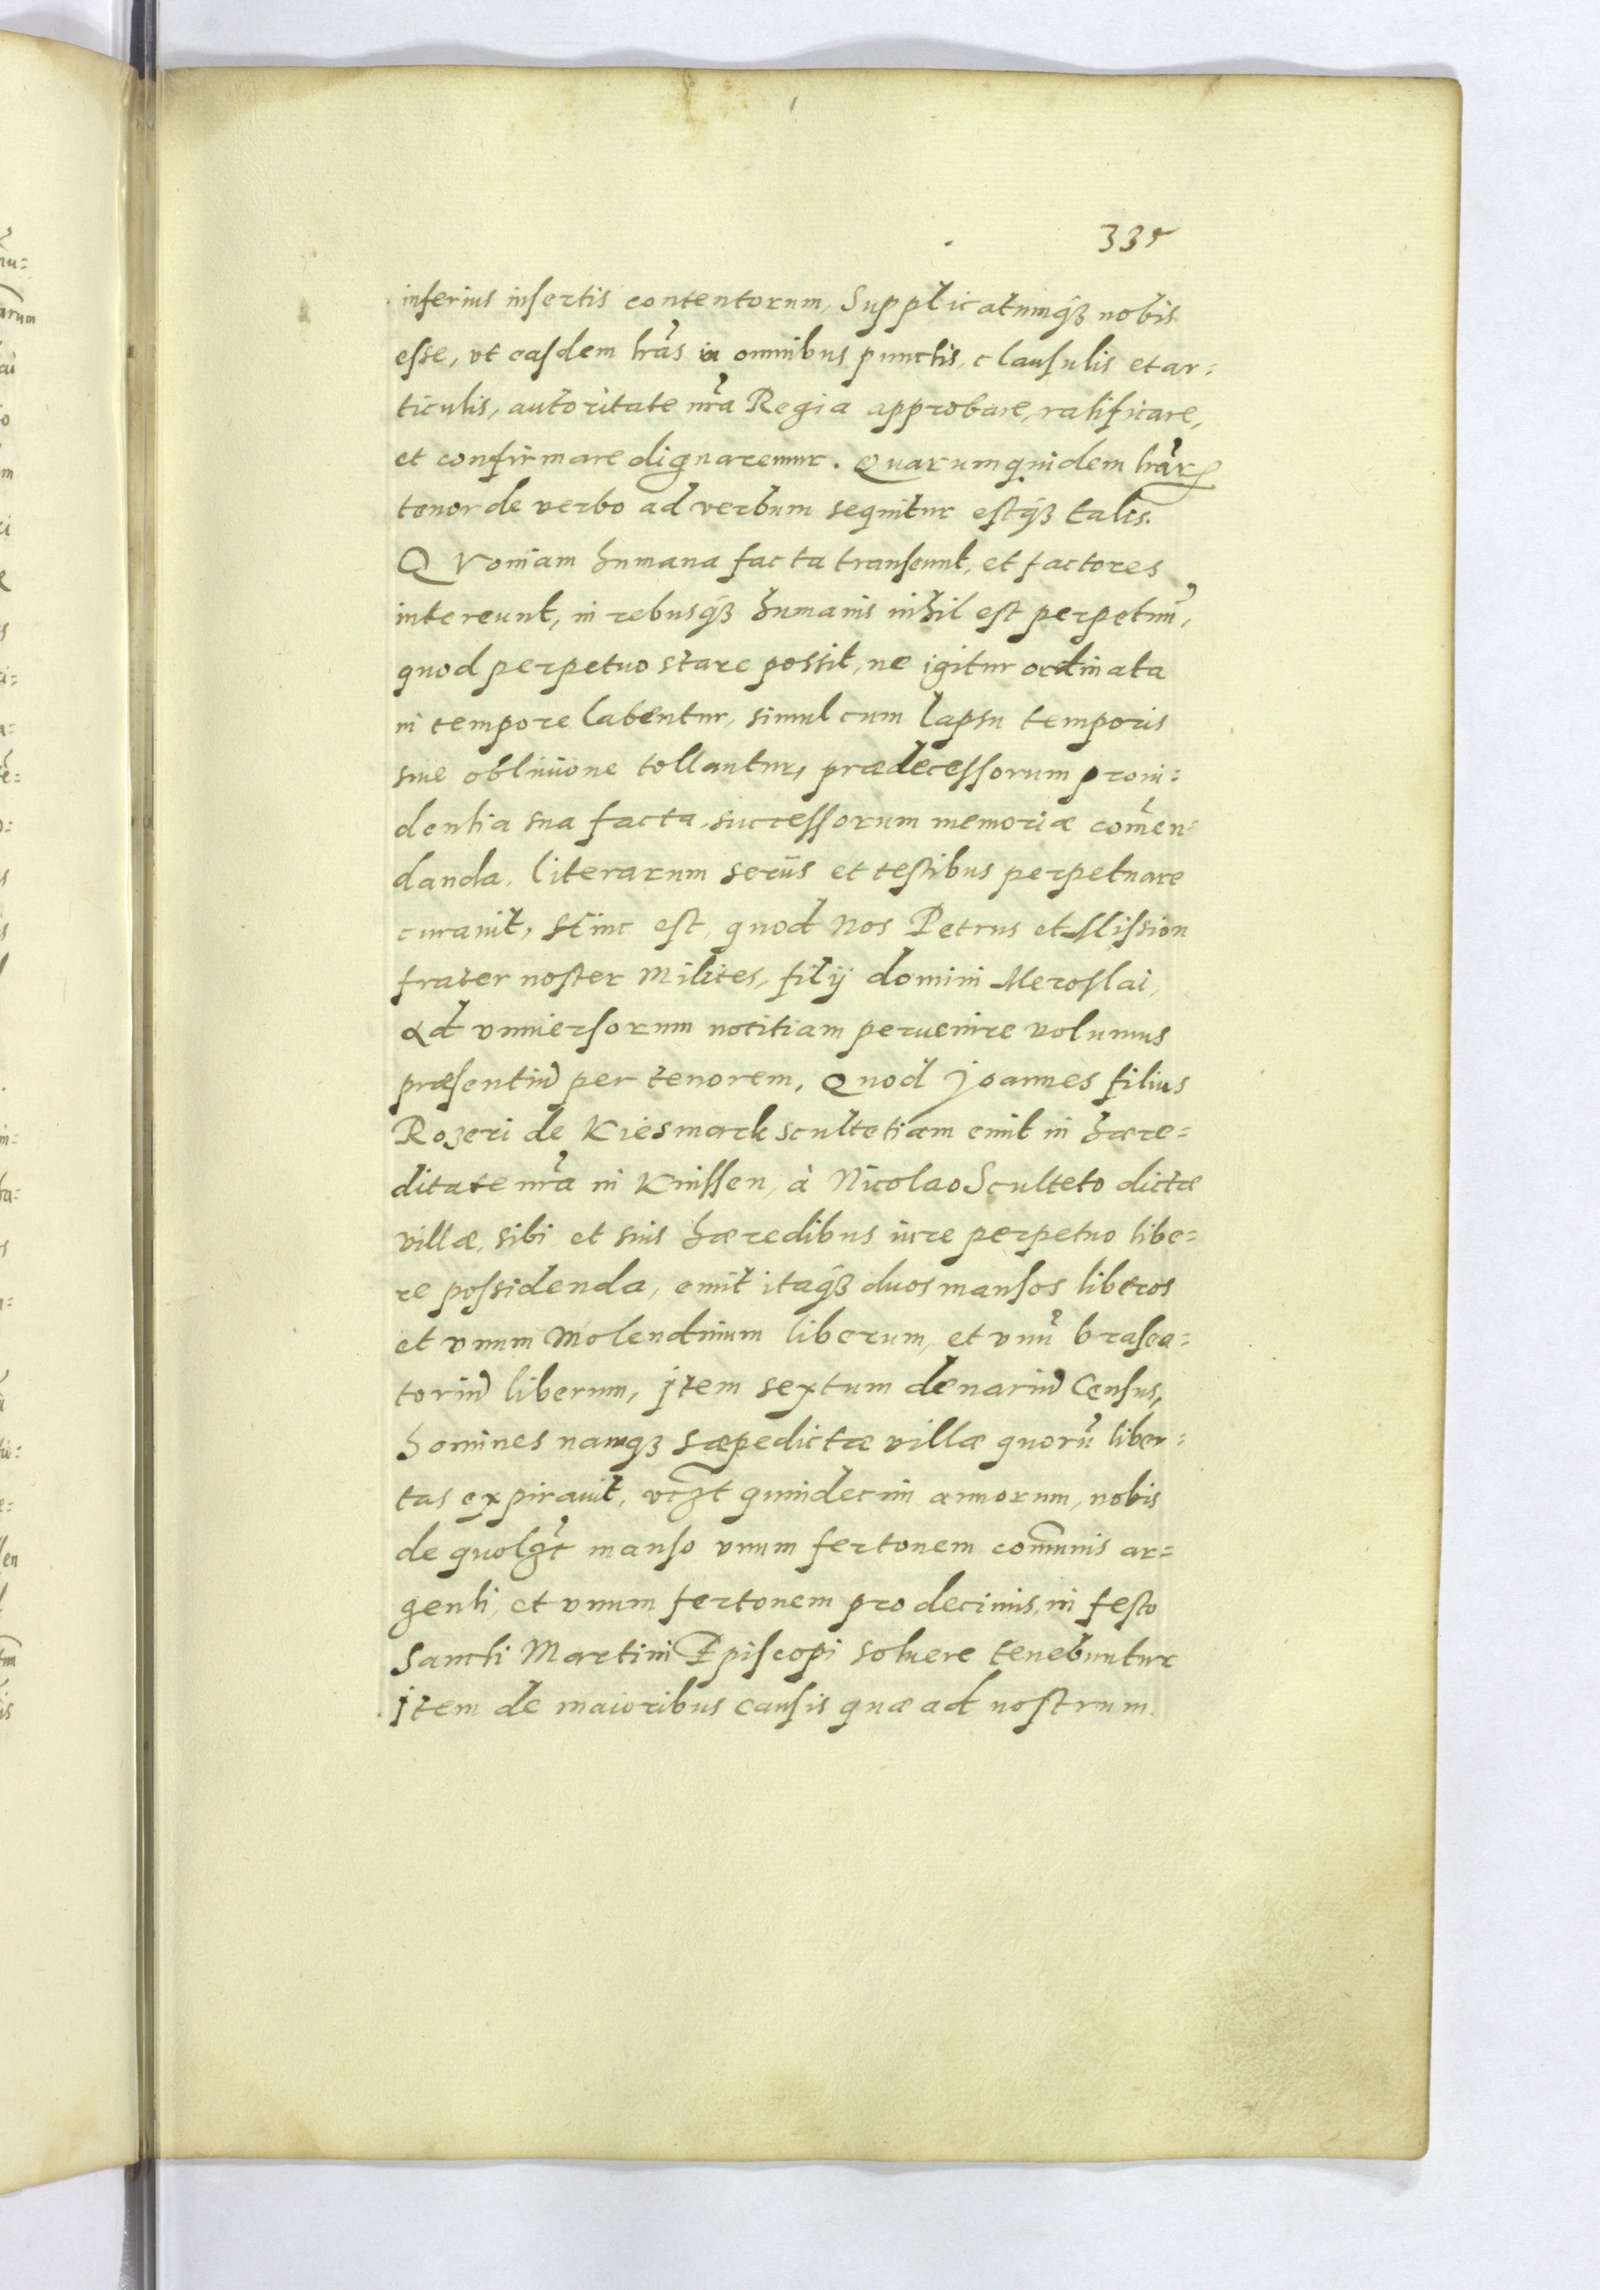 335
inferius insertis contentorum, Supplicatumq́ꝫ nobis
esse, vt easdem lr̃as in omnibus punctis, clausulis et ar=
ticulis, autoritate nr̃a Regia approbare, ratificare,
et confirmare dignaremur. Quarumquidem lr̃arꝝ
tenor de verbo ad verbum sequitur estq́ꝫ talis.
QVoniam humana facta transeunt, et factores
intereunt, in rebusq́ꝫ humanis nihil est perpetuũ,
quod perpetuo stare possit, ne igitur ordinata
in tempore labentur, simul cum lapsu temporis
siue obliuione tollantur, prædecessorum proui=
dentia sua facta successorum memoriæ com̃en=
danda, literarum serijs et testibus perpetuare
curauit, Hinc est, quod Nos Petrus et Mission
frater noster Milites, filij domini Meroslai,
ad vniuersorum notitiam peruenire volumus
præsentiũ per tenorem, Quod Joannes filius
Rozeri de Kiesmark scultetiam emit in hære=
ditate nr̃a in Knissen, à Nicolao Sculteto dictæ
villæ, sibi et suis hæredibus iure perpetuo libe=
re possidenda, emit itaq́ꝫ duos mansos liberos
et vnum Molendinum liberum, et vnũ brasea=
toriũ liberum, jtem sextum denariũ Census,
homines namqꝫ sæpedictæ villæ quorũ liber=
tas expirauit, vcꝫt quindecim annorum, nobis
de quolꝫt manso vnum fertonem com̃unis ar=
genti, et vnum fertonem pro decimis, in festo
Sancti Martini Episcopi soluere tenebuntur
jtem de maioribus causis quæ ad nostrum